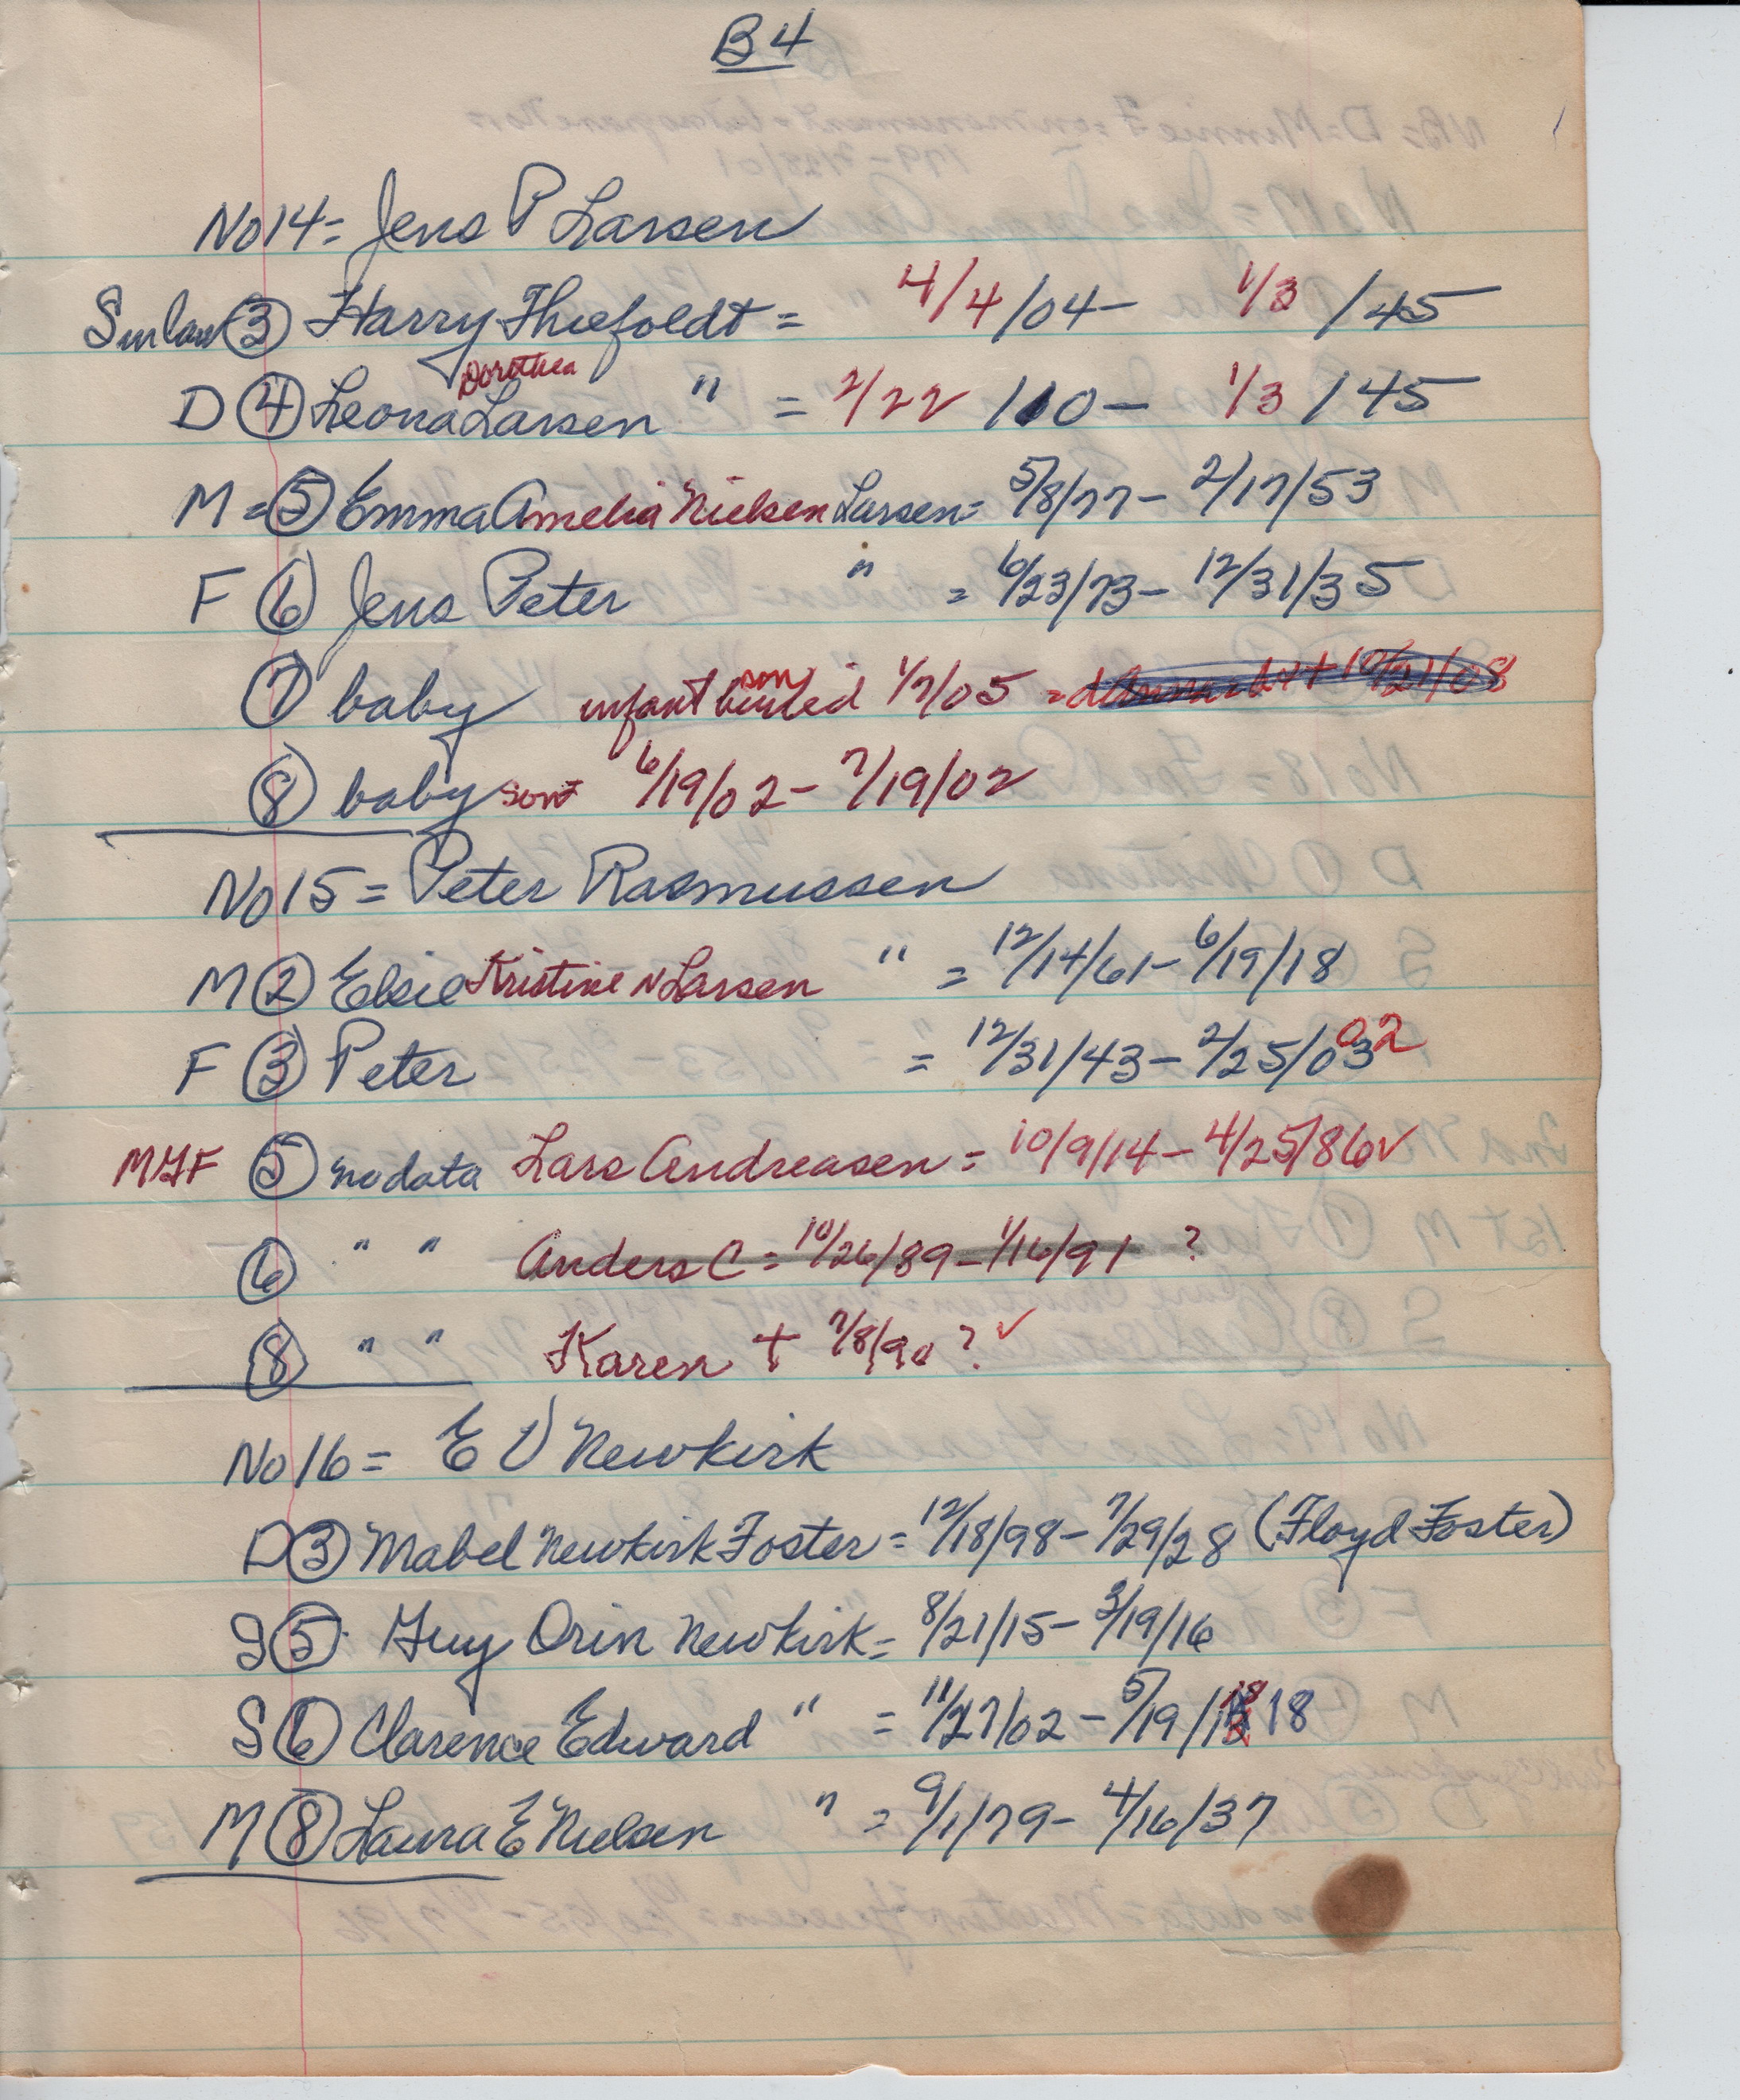 B4
No14= Jens P Larsen
Sinlaw ③ Harry Thiefoldt = 4/4/04- 1/3/45
Dorothea
D ④ Leona Larsen " = 2/22/10- 1/3/45
M=⑤ Emma Amelia Nielsen Larsen= 5/8/77- 2/17/53
F ⑥ Jens Peter " = 6/23/73- 12/31/35
son
⑦ baby infant buried 1/7/05 =
⑧ baby son 6/19/02- 7/19/02
No15= Peter Rasmussen
M② Elsie Kristine N Larsen " = 12/14/61- 6/19/18
F ③ Peter = 12/31/43- 2/25/03 02
MGF ⑤ no data Lars Andreasen= 10/9/14- 4/25/86✓
⑥ " " Anders C= 10/26/89- 1/16/91 ?
⑧ " " Karen + 7/8/90? ✓
No16= E V Newkirk
D③ Mabel Newkirk Foster= 12/18/98- 7/29/28 (Floyd Foster)
S⑤ Guy Orin Newkirk= 8/21/15- 3/19/16
S⑥ Clarence Edward " = 11/27/02- 5/19/ 18
M⑧ Laura E Nielsen " = 9/1/79- 4/16/37